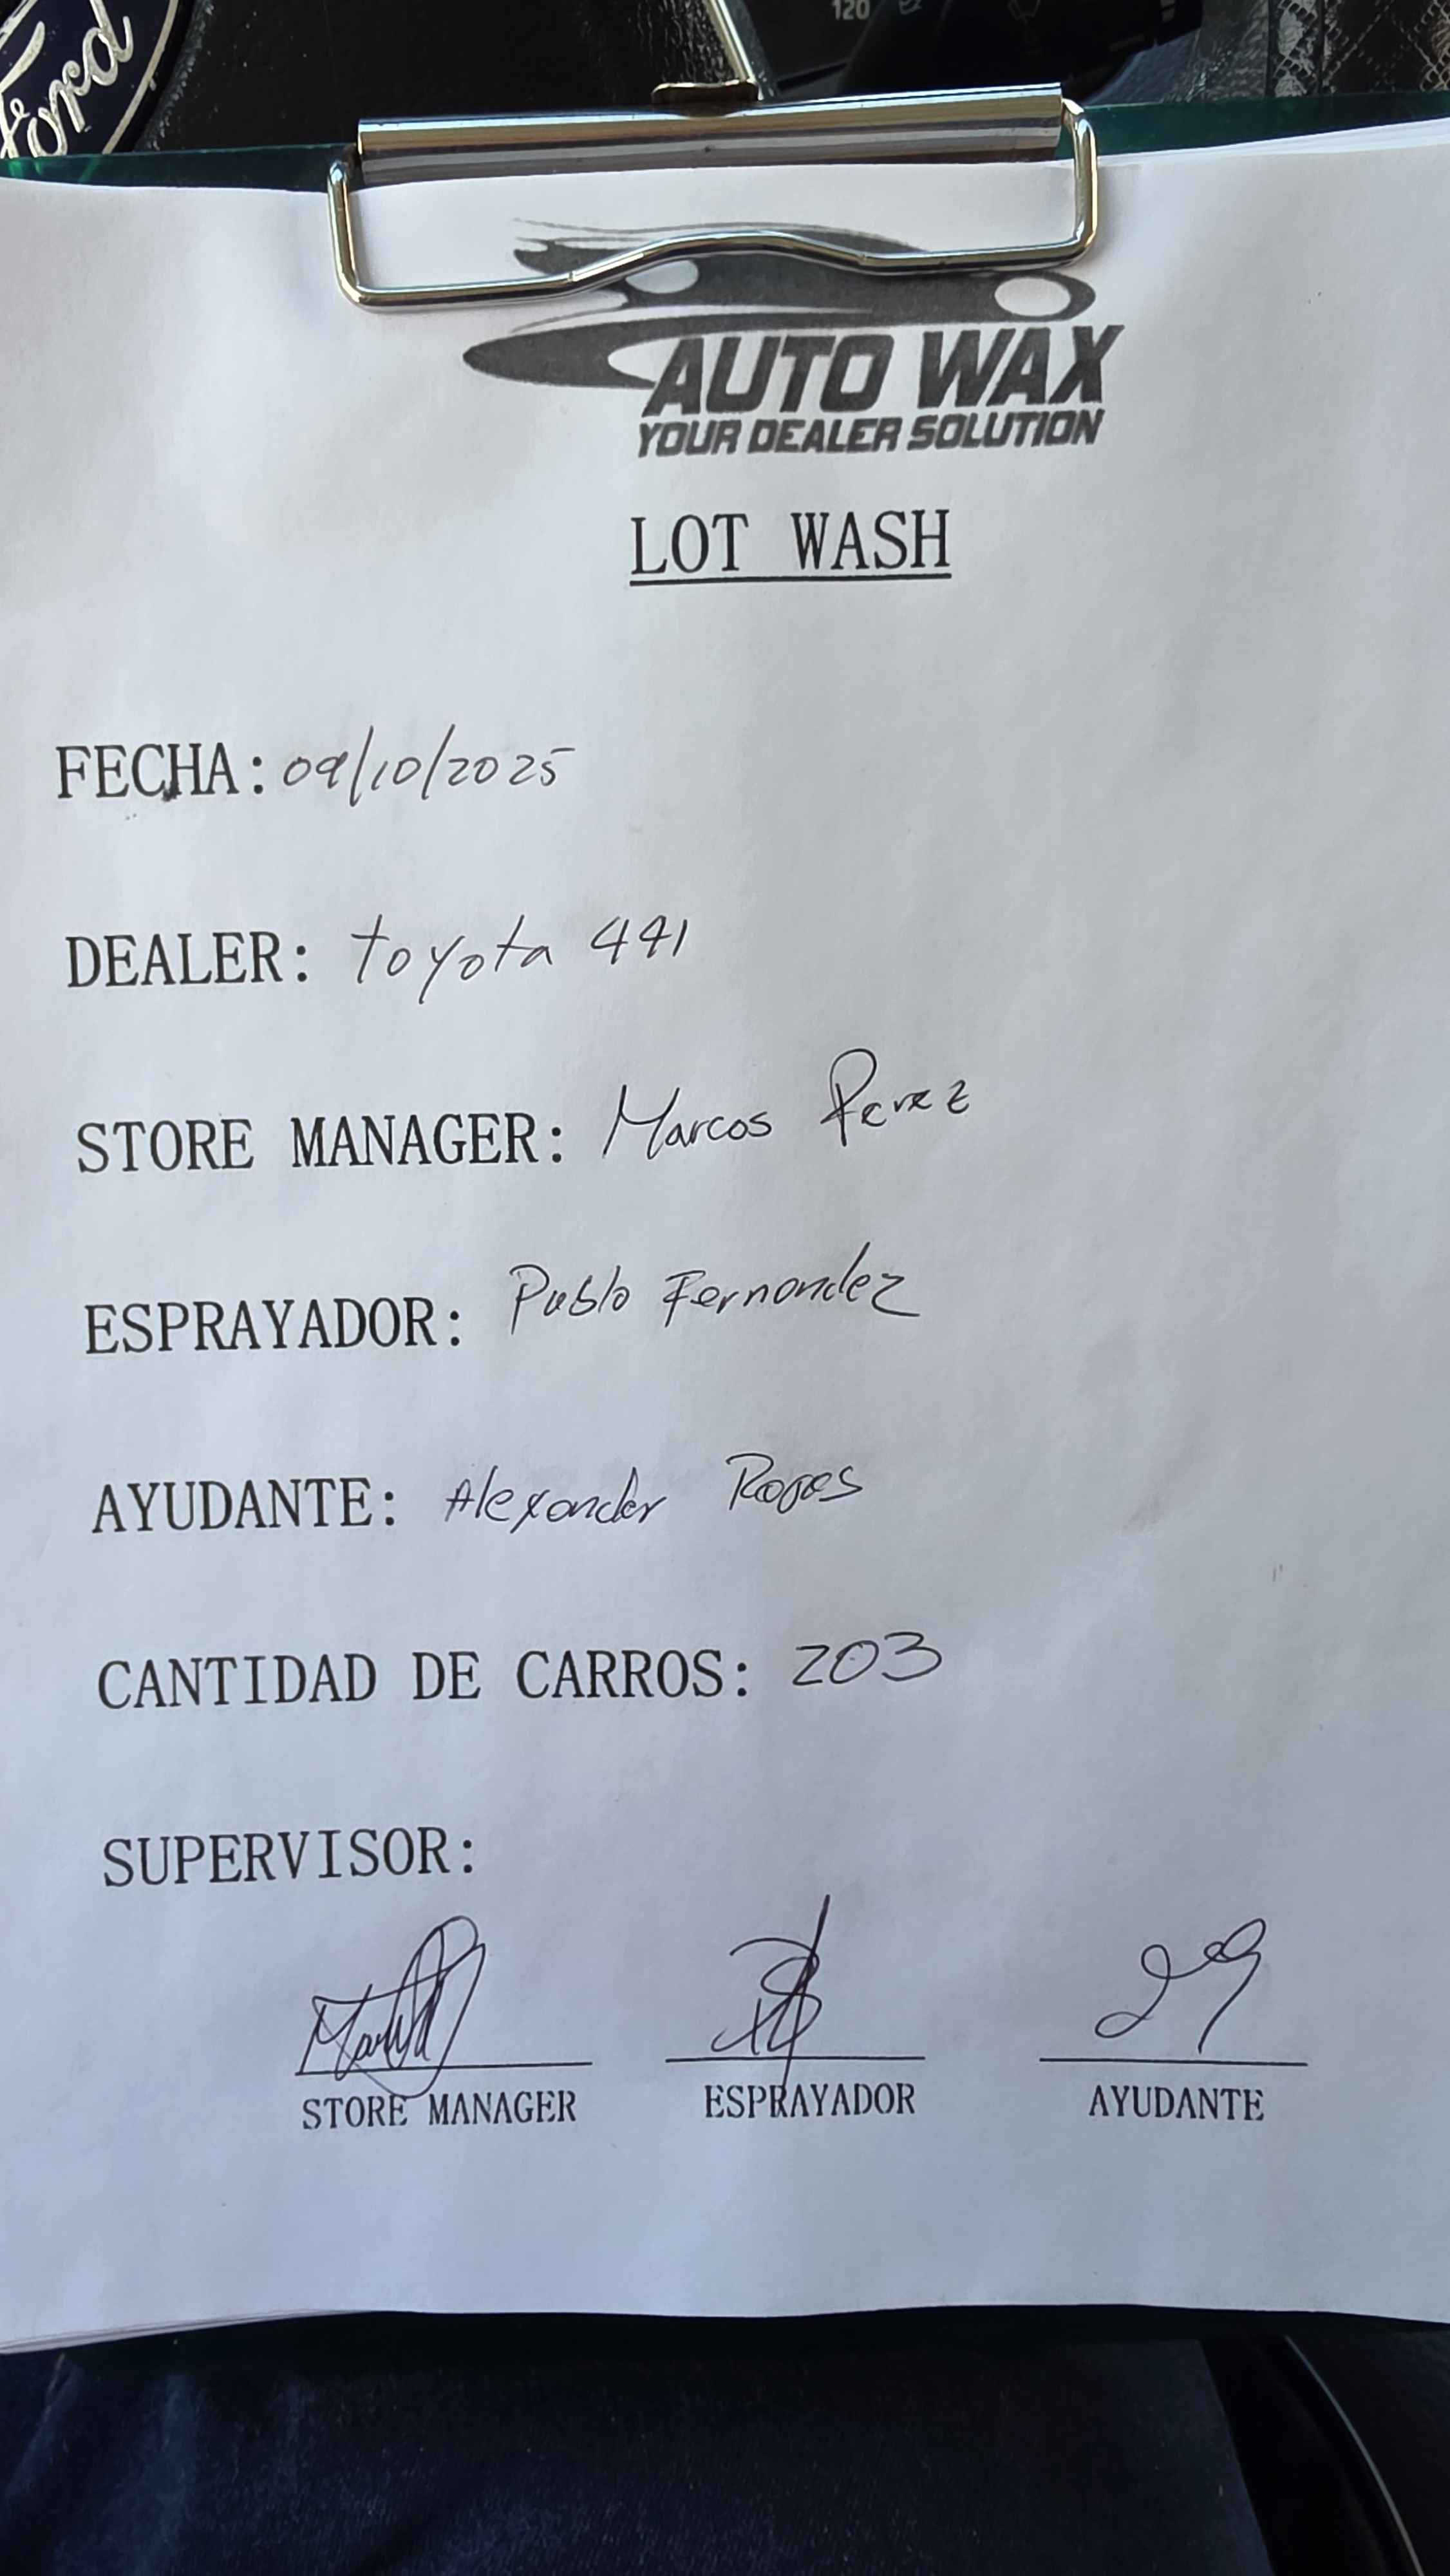 Ford
120
AUTO WAX
YOUR DEALER SOLUTION
LOT WASH
FECHA: 09/10/2025
DEALER: toyota 441
STORE MANAGER: Marcos Perez
ESPRAYADOR: Pablo Fernandez
AYUDANTE: Alexander Rojas
CANTIDAD DE CARROS: 203
SUPERVISOR:
STORE MANAGER ESPRAYADOR AYUDANTE